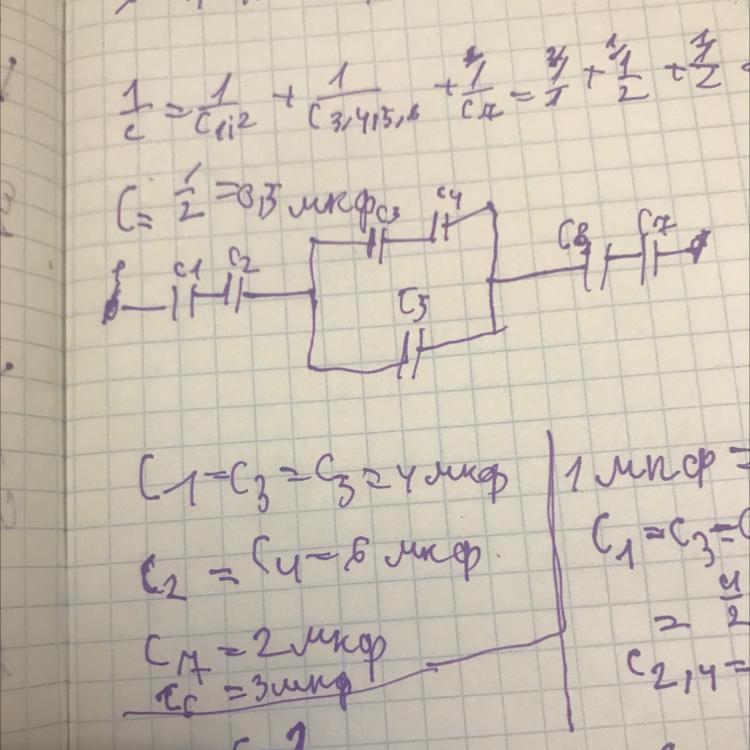 1/c = 1/C1,2 + 1/C3,4,5,6 + 1/C7 = 1/1 + 1/2 + 1/2 =
C = 1/2 = 0,5 мкф
C3 C4
C1 C2 C6 C7
C5
C1 = C3 = C3 = 4 мкф
C2 = C4 = 6 мкф
C7 = 2 мкф
= 3 мкф
1 мкф =
C1 = C3 =
= 4/2
C2,4 =